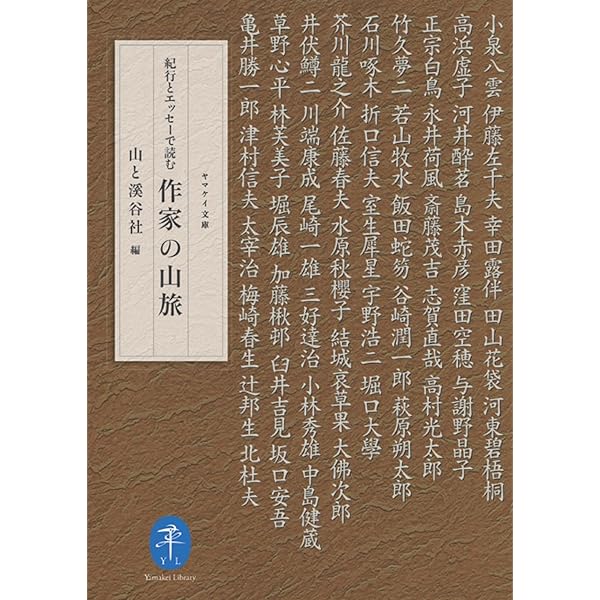 小泉八雲 伊藤左千夫 幸田露伴 田山花袋 河東碧梧桐
高浜虚子 河井酔茗 島木赤彦 窪田空穂 与謝野晶子
正宗白鳥 永井荷風 斎藤茂吉 志賀直哉 高村光太郎
竹久夢二 若山牧水 飯田蛇笏 谷崎潤一郎 萩原朔太郎
石川啄木 折口信夫 室生犀星 宇野浩二 堀口大學
芥川龍之介 佐藤春夫 水原秋櫻子 結城哀草果 大佛次郎
井伏鱒二 川端康成 尾崎一雄 三好達治 小林秀雄 中島健蔵
草野心平 林芙美子 堀辰雄 加藤楸邨 臼井吉見 坂口安吾
亀井勝一郎 津村信夫 太宰治 梅崎春生 辻邦生 北杜夫
ヤマケイ文庫
紀行とエッセーで読む
作家の山旅
山と溪谷社 編
Y L
Yamakei Library